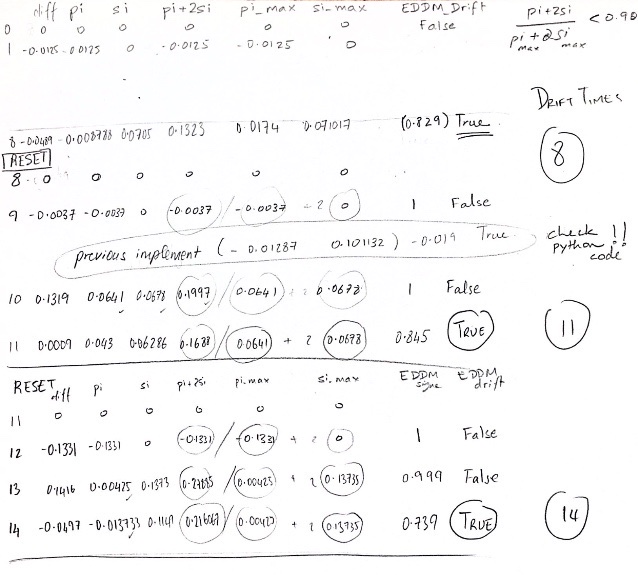 diff pi si pi+2si pi_max si_max EDDM_Drift
0 0 0 0 0 0 0 False
1 -0.0125 -0.0125 0 -0.0125 -0.0125 0
pi+2si / pi max + 2si max < 0.90
DRIFT TIMES
8 -0.0489 -0.008788 0.0705 0.1323 0.0174 0.071017 (0.829) True
RESET
8 0 0 0 0 0 0
8
9 -0.0037 -0.0037 0 -0.0037 / -0.0037 + 2 0 1 False
previous implement (-0.01287 0.101132) -0.019 True
check !! python code
10 0.1319 0.0641 0.0678 0.1997 / 0.0641 + 2 0.0678 1 False
11 0.0009 0.043 0.06286 0.1688 / 0.0641 + 2 0.0678 0.845 TRUE 11
RESET diff pi si pi+2si pi_max si_max EDDM EDDM drift
11 0 0 0 0 0 0
12 -0.1331 -0.1331 0 -0.1331 / -0.1331 + 2 0 1 False
13 0.1416 0.00425 0.1373 / 0.00425 + 2 0.13735 0.999 False
14 -0.0497 -0.013733 / + 2 0.13735 0.739 TRUE 14